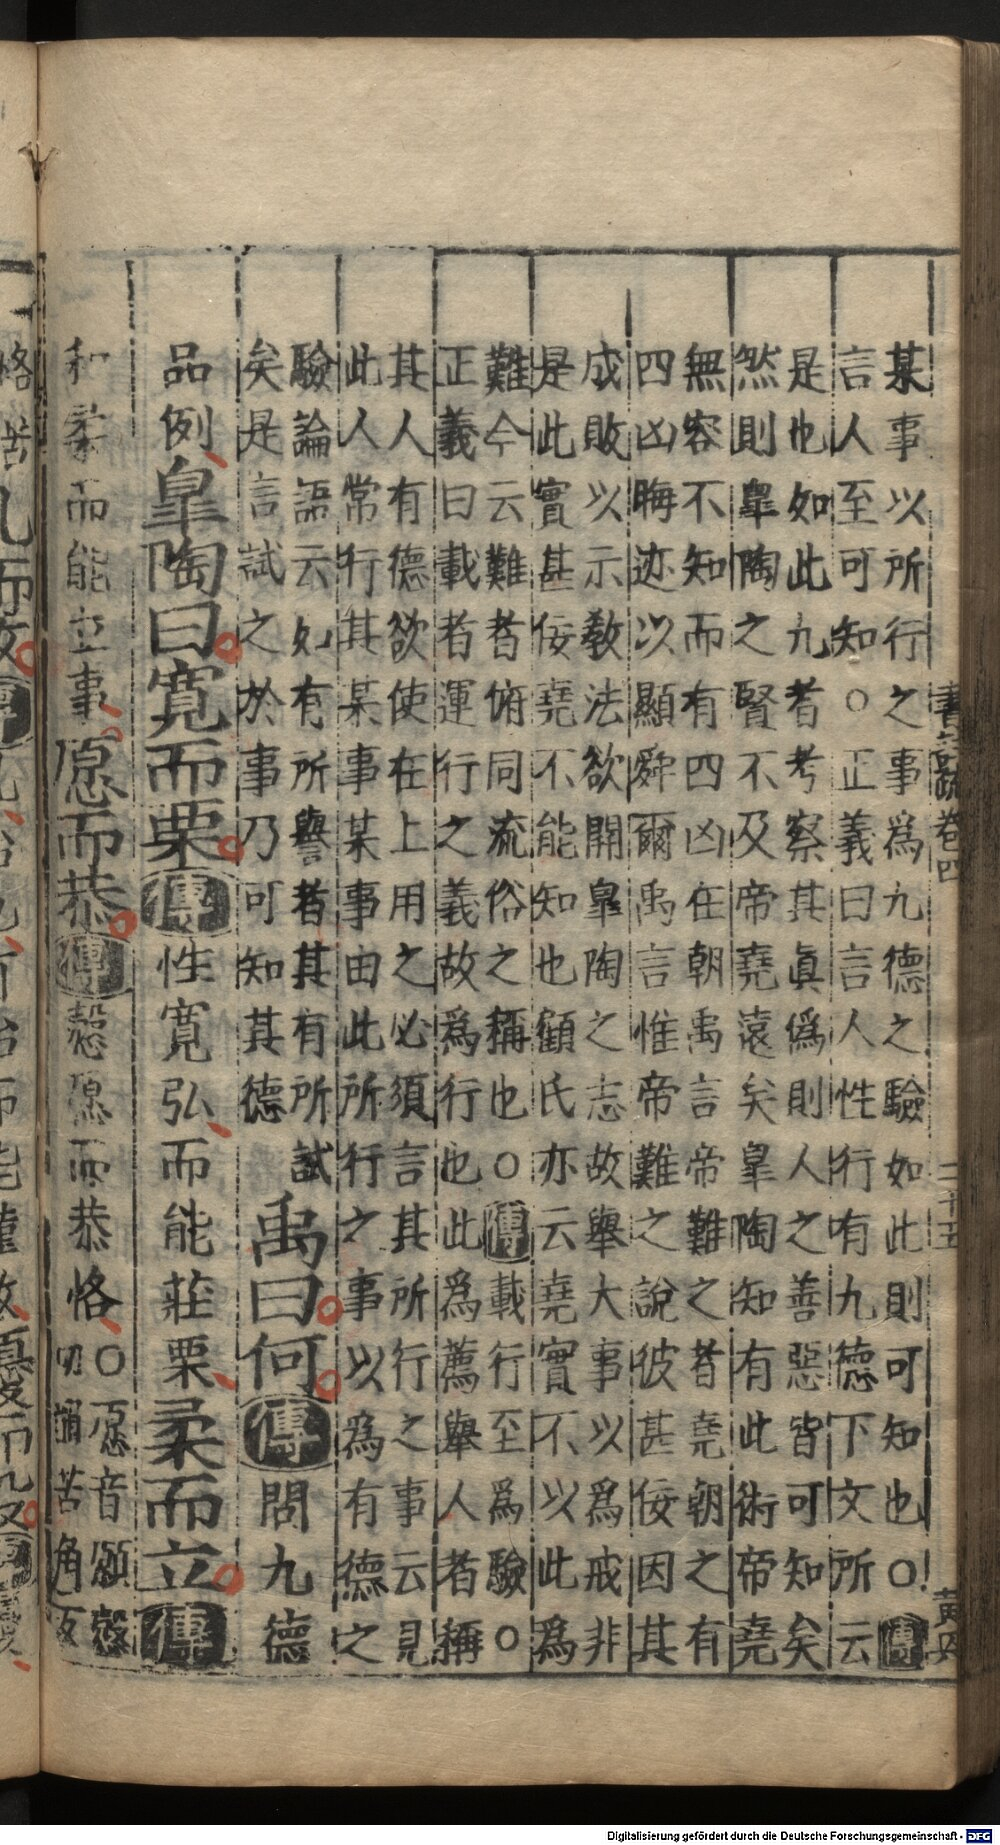 某事以所行之事爲九德之驗如此則可知也○傳
言人至可知○正義曰言人性行有九德下文所云
是也如此九者考察其眞僞則人之善惡皆可知矣
然則皐陶之賢不及帝堯遠矣皐陶知有此術帝堯
無容不知而有四凶在朝禹言帝難之者堯朝之有
四凶晦迹以顯舜爾禹言惟帝難之說彼甚佞因其
成敗以示敎法欲開皐陶之志故舉大事以爲戒非
是此實甚佞堯不能知也顧氏亦云堯實不以此爲
難今云難者俯同流俗之稱也○傳載行至爲驗○
正義曰載者運行之義故爲行也此爲薦舉人者稱
其人有德欲使在上用之必須言其所行之事云見
此人常行其某事某事由此所行之事以為有德之
驗論語云如有所譽者其有所試
矣是言試之於事乃可知其德
禹曰何傳問九德
品例皐陶曰寛而栗傳性寛弘而能莊栗柔而立傳
和柔而能立事愿而恭傳慤愿而恭恪
○愿音願慤
切誦苦角反
書主疏卷四
二十五
Digitalisierung gefördert durch die Deutsche Forschungsgemeinschaft - DFG